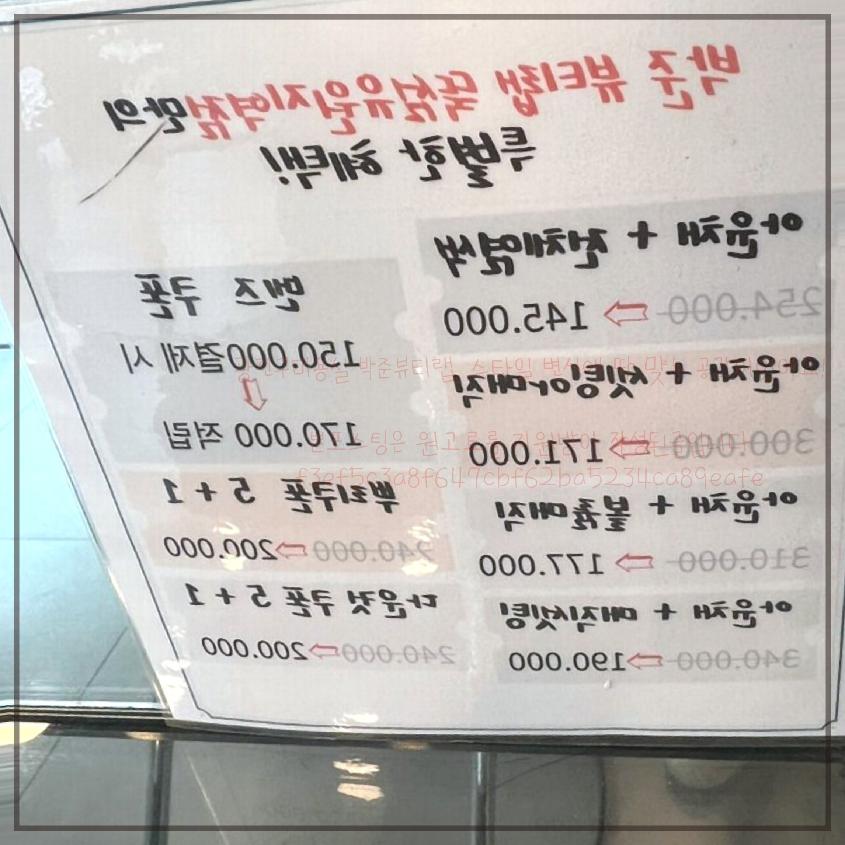 박준 뷰티랩 뚝섬유원지역점만의
특별한 혜택!
아윤채 + 전체염색
254.000 ⇨ 145.000
아윤채 + 셋팅이매직
300.000 ⇨ 171.000
아윤채 + 볼륨매직
310.000 ⇨ 177.000
아윤채 + 매직셋팅
340.000 ⇨ 190.000
맨즈 쿠폰
150.000결제 시
⇩
170.000 적립
뿌리쿠폰 5 + 1
240.000 ⇨ 200.000
다운컷 쿠폰 5 + 1
240.000 ⇨ 200.000
박준뷰티랩, 스타일 변신에 딱 맞는
본 포스팅은 원고료를 지원받아 작성된 글입니다
f3ef5c3a8f647cbf62ba5234ca89eafe